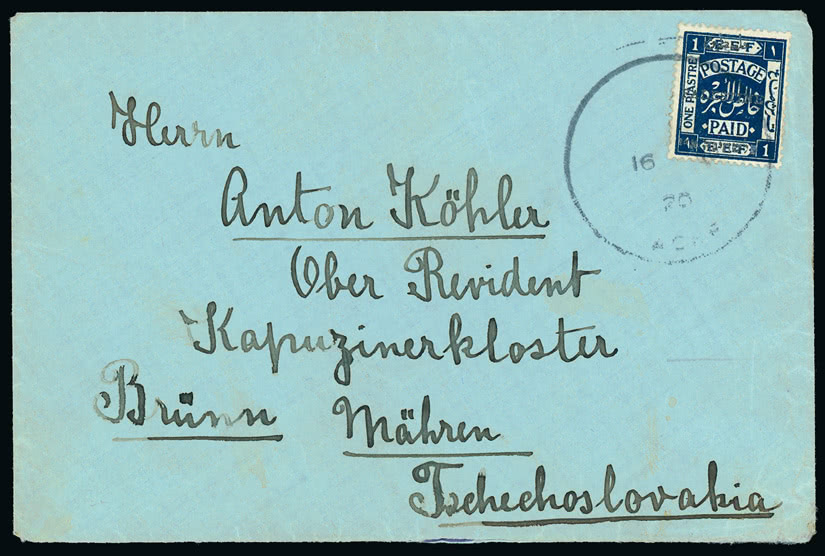 Herrn
Anton Köhler
Ober Revident
Kapuzinerkloster
Brünn Mähren
Tschechoslovakia
1 E·E·F ١
POSTAGE
ONE PIASTRE
خالص الأجرة
PAID
١ E·E·F 1
16
20
ACRE